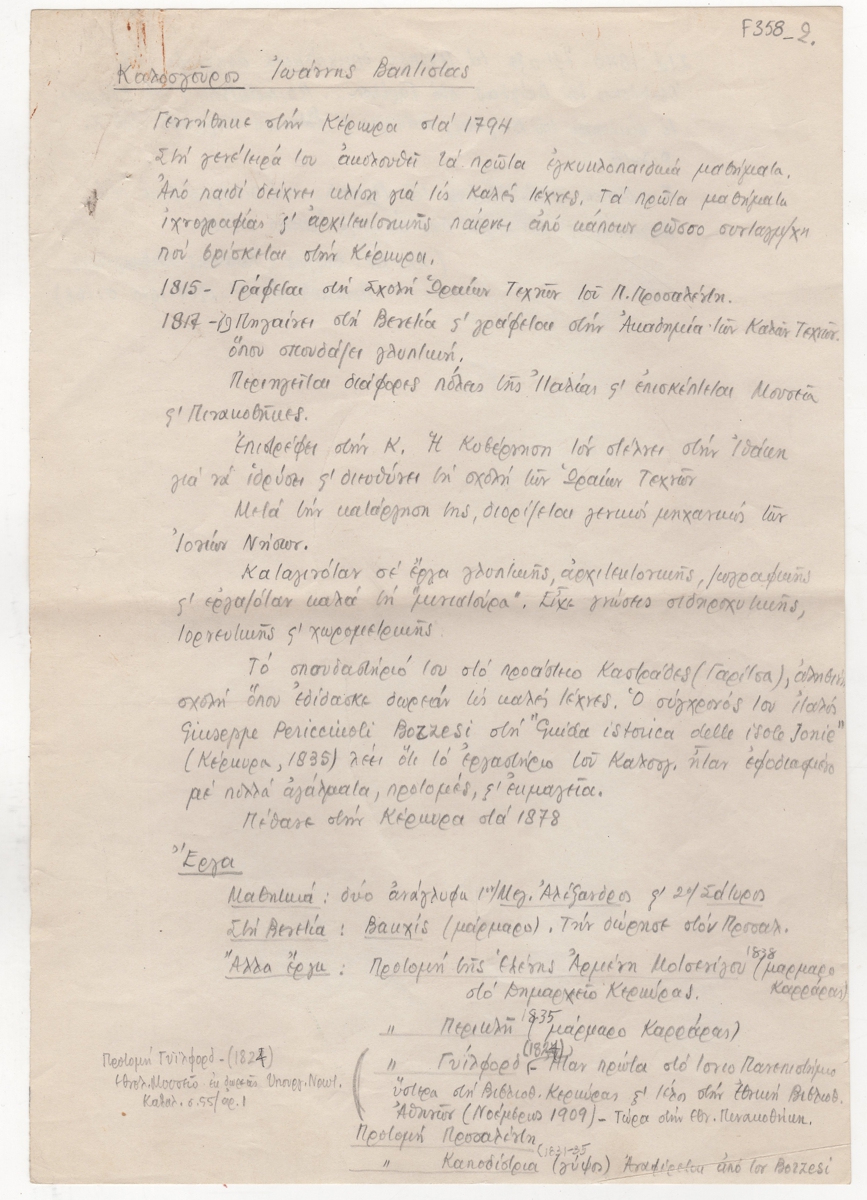 F358_2.
Καλοσγούρος Ἰωάννης Βαπτίστας
Γεννήθηκε στήν Κέρκυρα στά 1794
Στή γενέτειρά του ἀκολουθεῖ τά πρῶτα ἐγκυκλοπαιδικά μαθήματα.
Ἀπό παιδί δείχνει κλίση γιά τίς καλές τέχνες. Τά πρῶτα μαθήματα
ἰχνογραφίας ϛ' ἀρχιτεκτονικῆς παίρνει ἀπό κάποιον ρῶσσο συνταγμ/χη
πού βρίσκεται στήν Κέρκυρα.
1815 - Γράφεται στή Σχολή Ὡραίων Τεχνῶν τοῦ Π. Προσαλέντη.
1817 -19 Πηγαίνει στή Βενετία ϛ' γράφεται στήν Ἀκαδημία τῶν Καλῶν Τεχνῶν.
ὅπου σπουδάζει γλυπτική.
Περιηγεῖται διάφορες πόλεις τῆς Ἰταλίας ϛ' ἐπισκέπτεται Μουσεῖα
ϛ' Πινακοθῆκες.
Ἐπιστρέφει στήν Κ. Ἡ Κυβέρνηση τόν στέλνει στήν Ἰθάκη
γιά νά ἱδρύσει ϛ' διευθύνει τή σχολή τῶν Ὡραίων Τεχνῶν
Μετά τήν κατάργηση της, διορίζεται γενικός μηχανικός τῶν
Ἰονίων Νήσων.
Καταγινόταν σέ ἔργα γλυπτικῆς, ἀρχιτεκτονικῆς, ζωγραφικῆς
ϛ' ἐργαζόταν καλά τή "μινιατούρα". Εἶχε γνώσεις σιδηροχυτικῆς,
τορνευτικῆς ϛ' χωρομετρικῆς
Τό σπουδαστήριό του στό προάστειο Καστράδες (Γαρίτσα), ἀληθινή
σχολή ὅπου ἐδίδασκε δωρεάν τίς καλές τέχνες. Ὁ σύγχρονός του ἰταλός
Giuseppe Pericciuoli Bozzesi στή "Guida istorica delle isole Jonie"
(Κέρκυρα, 1835) λέει ὅτι τό ἐργαστήριο τοῦ Καλοσγ. ἦταν ἐφοδιασμένο
μέ πολλά ἀγάλματα, προτομές, ϛ' ἐκμαγεῖα.
Πέθανε στήν Κέρκυρα στά 1878
Ἔργα
Μαθητικά: δύο ἀνάγλυφα 1ον/ Μεγ. Ἀλέξανδρος ϛ' 2ον/ Σάτυρος
Στή Βενετία: Βακχίς (μάρμαρο). Τήν δώρησε στόν Προσαλ.
Ἄλλα ἔργα: Προτομή τῆς Ἑλένης Ἀρμένη Μοτσενίγου 1838 (μάρμαρο
Καρράρας)
στό Δημαρχεῖο Κερκύρας.
" Περικλῆ 1835 (μάρμαρο Καρράρας)
" Γυΐλφορδ (1827) - Ἦταν πρῶτα στό Ἰόνιο Πανεπιστήμιο
ὕστερα στή Βιβλιοθ. Κερκύρας ϛ' τέλος στήν Ἐθνική Βιβλιοθ.
Ἀθηνῶν (Νοέμβριος 1909) - Τώρα στήν Ἐθν. Πινακοθήκη.
Προτομή Γυΐλφορδ - (1827)
Ἐθνολ. Μουσεῖο
Καταλ. σ. 55/αρ. 1
Προτομή Προσαλέντη
" Καποδίστρια (1831-35 (γύψος) Ἀναφέρεται ἀπό τον Bozzesi